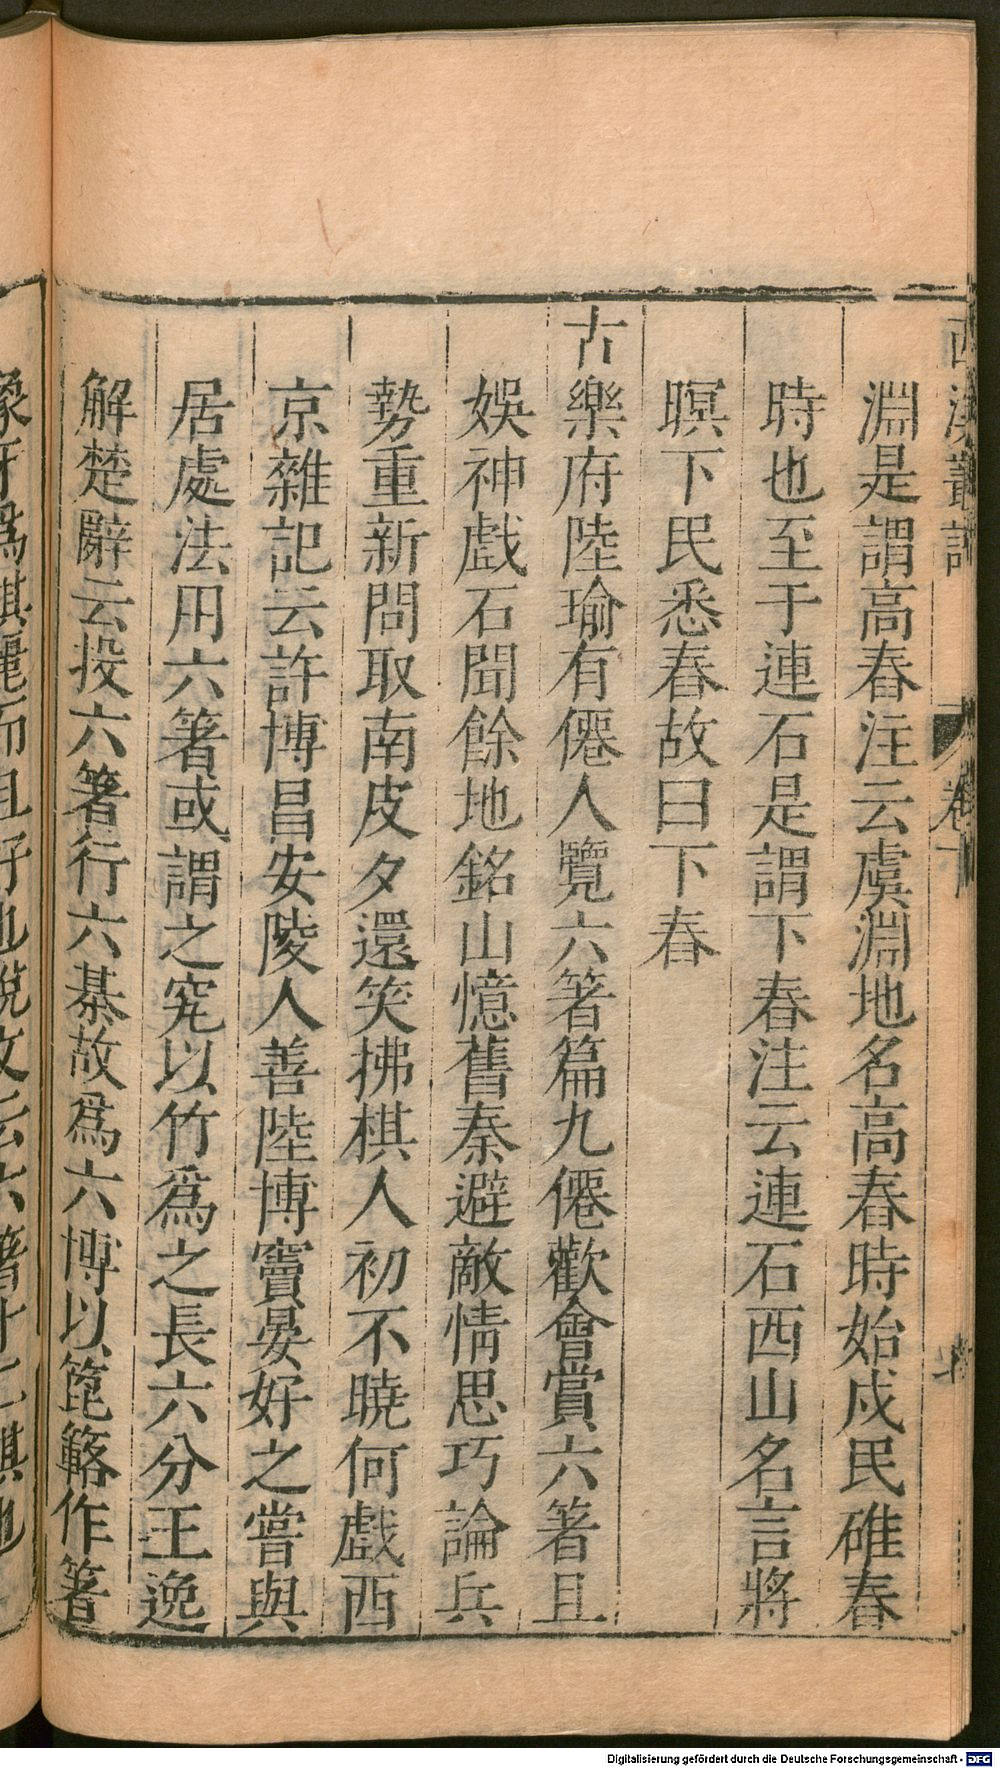 西溪叢語
卷下
淵是謂高舂注云虞淵地名高舂時始戍民碓舂
時也至于連石是謂下舂注云連石西山名言將
暝下民悉舂故曰下舂
古樂府陸瑜有僊人覽六箸篇九僊歡會賞六箸且
娛神戲石聞餘地銘山憶舊秦避敵情思巧論兵
勢重新問取南皮夕還笑拂棋人初不曉何戲西
京雜記云許博昌安陵人善陸博竇晏好之嘗與
居處法用六箸或謂之究以竹爲之長六分王逸
解楚辭云投六箸行六棊故爲六博以箆簬作箸
爲棋麗而且好也說文云六箸十二棋也
Digitalisierung gefördert durch die Deutsche Forschungsgemeinschaft - DFG